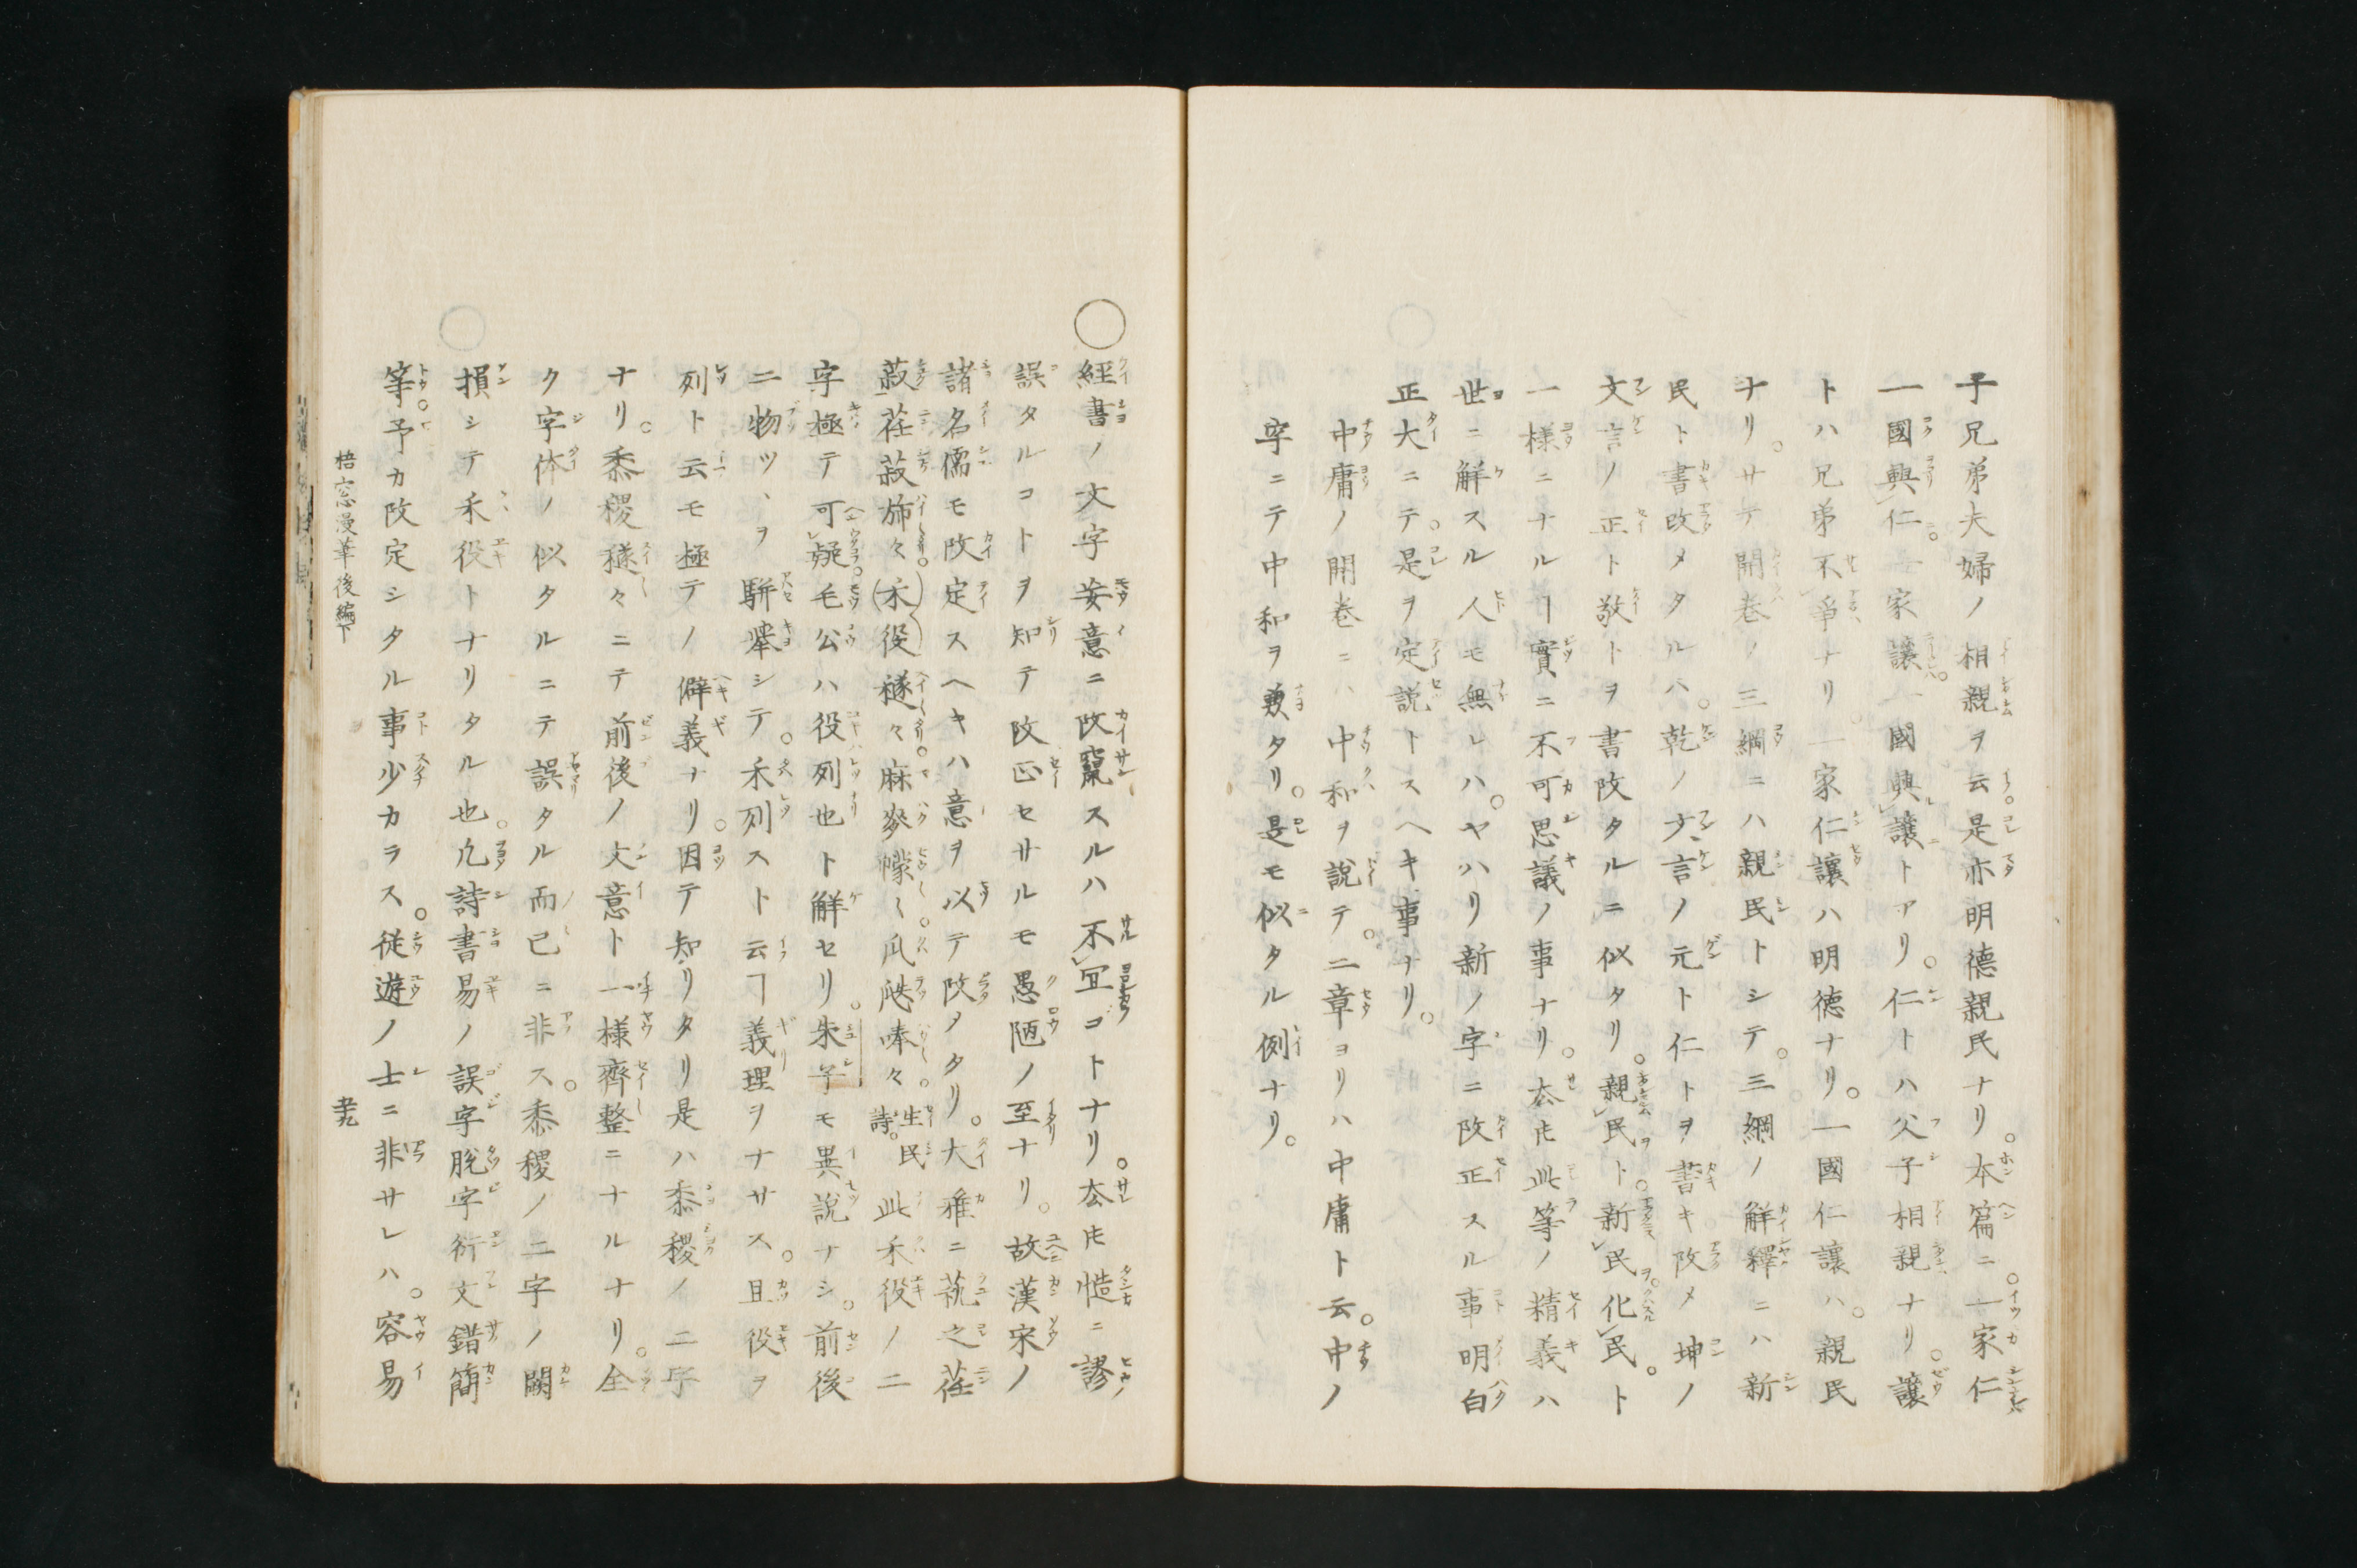 子兄弟夫婦ノ相親ヲ云是亦明德親民ナリ。本篇ニ。一家仁
一國興仁。一家讓一國興讓トアリ。仁トハ父子相親ナリ。讓
トハ兄弟不爭ナリ。一家仁讓ハ明徳ナリ。一國仁讓ハ。親民
ナリ。サテ開卷ノ三綱ニハ親民トシテ。三綱ノ解釋ニハ新
民ト書改メタルハ。乾ノ文言ノ元ト仁トヲ書キ改メ坤ノ
文言ノ正ト敬トヲ書改タルニ似タリ。親民ト。新民ヲ。化民。ト
一様ニナルヿ實ニ不可思議ノ事ナリ。去𪜈此等ノ精義ハ
世ニ解スル人モ無レハ。ヤハリ新ノ字ニ改正スル事明白
正大ニテ。是ヲ定説トスヘキ事ナリ。
中庸ノ開卷ニハ中和ヲ說テ。二章ヨリハ中庸ト云。中ノ
字ニテ中和ヲ兼タリ。是モ似タル例ナリ。
○經書ノ文字妄意ニ改竄スルハ不冝コトナリ。去𪜈慥ニ謬
誤タルコトヲ知テ改正セサルモ愚陋ノ至ナリ。故漢宋ノ
諸名儒モ改定スヘキハ意ヲ以テ改メタリ。大雅ニ蓺之荏
菽荏菽旆々。禾役穟々。麻麥幪〻。瓜瓞唪々。生民詩。此禾役ノ二
字極テ可疑毛公ハ役列也ト解セリ。朱子モ異說ナシ。前後
二物ツヽヲ駢擧シテ。禾列スト云ヿ義理ヲナサス。且役ヲ
列ト云モ極テノ僻義ナリ。因テ知リタリ是ハ黍稷ノ二字
ナリ。黍稷穟々ニテ前後ノ文意ト一様齊整ニナルナリ。全
ク字体ノ似タルニテ誤タル而已ニ非ス。黍稷ノ二字ノ闕
損シテ禾役トナリタル也。凡詩書易ノ誤字脫字衍文錯簡
等。予カ改定シタル事少カラス。從遊ノ士ニ非サレハ。容易
梧窓漫筆後編下